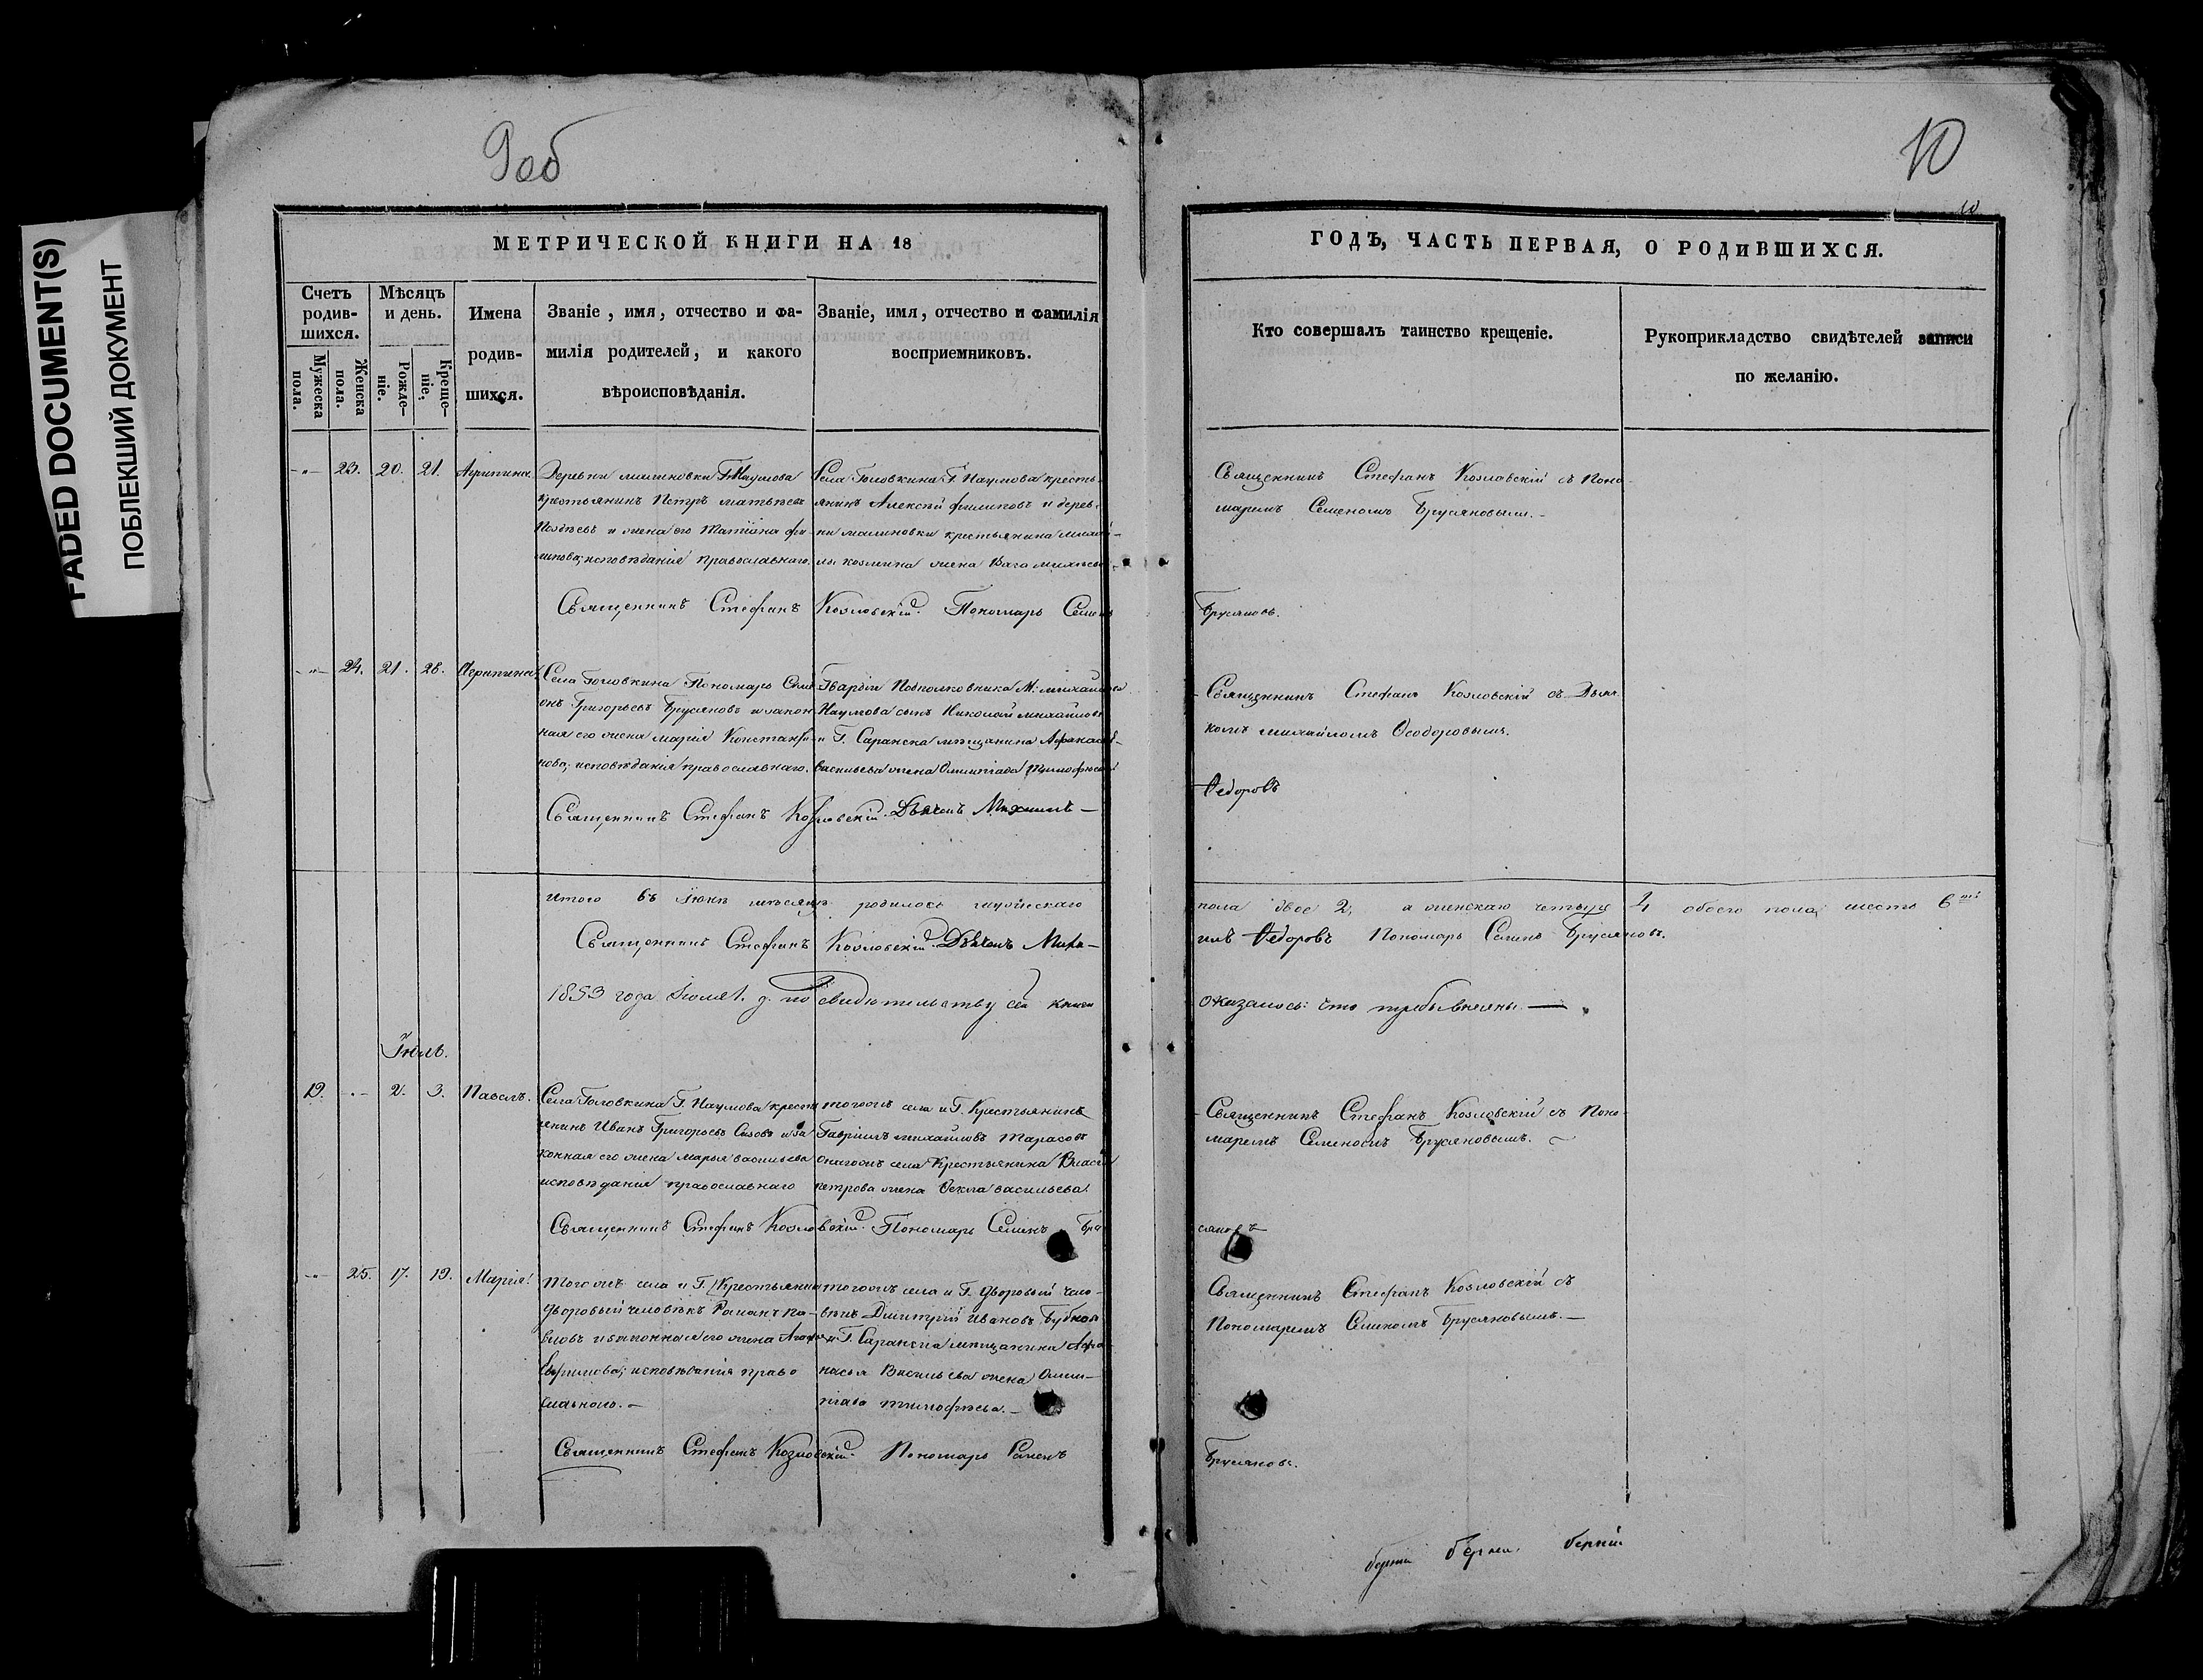 FADED DOCUMENT(S)
ПОБЛЕКШИЙ ДОКУМЕНТ
9об
10
10
МЕТРИЧЕСКОЙ КНИГИ НА 18
ГОДЪ, ЧАСТЬ ПЕРВАЯ, О РОДИВШИХСЯ.
Счетъ родив-шихся.
Мужеска пола.
Женска пола.
Мѣсяцъ и день.
Рожде-ніе.
Креще-ніе.
Имена родив-шихся.
Званіе, имя, отчество и фа-
милія родителей, и какого
вѣроисповѣданія.
Званіе, имя, отчество и фамилія
восприемниковъ.
Кто совершалъ таинство крещеніе.
Рукоприкладство свидѣтелей записи
по желанію.
23. 20. 21. Агрипина.
Деревни малиновки Г. Наумова
крестьянинъ Петръ матвѣевъ
и жена его Татіана фи-
липова; исповѣданія православнаго.
Села Головкина Г. Наумова кресть-
янинъ Алексѣй филиповъ и дерев-
ни малиновки крестьянина
козмина жена
Священникъ Стефанъ Козловскій съ Поно-
маремъ Семеномъ Брусяновымъ.
Священникъ Стефанъ Козловскій. Пономарь Семенъ
Брусяновъ.
24. 21. 28. Агрипина.
Села Головкина Пономарь Симе-
онъ Григорьевъ Брусяновъ и закон-
ная его жена марія Константи-
нова; исповѣданія православнаго.
Гвардіи Подполковника М. михайлова
Наумова сынъ Николай михайловъ
и Г. Саранска мѣщанина Афанасія
васильева жена Олимпіада Тимофѣева
Священникъ Стефанъ Козловскій съ Дьяч-
комъ михайломъ Ѳеодоровымъ.
Священникъ Стефанъ Козловскій. Дьячекъ Михаилъ
Ѳедоровъ
итого въ Іюнѣ мѣсяцѣ родилось мужескаго
пола двое 2, а женскаго четыре 4 обоего пола шесть 6
Священникъ Стефанъ Козловскій. Дьячекъ Миха-
илъ Ѳедоровъ Пономарь Семенъ Брусяновъ.
1853 года Іюля 1. д. по свидѣтельству сей книги
оказалось: что
Іюль.
19. 2. 3. Павелъ.
Села Головкина Г. Наумова кресть
янинъ Иванъ Григорьевъ Сизовъ и за
конная его жена марья васильева
исповѣданія православнаго
тогожъ села и Г. Крестьянинъ
Гавріилъ михайловъ Тарасовъ
онагожъ села Крестьянина Власа
петрова жена Ѳекла васильева.
Священникъ Стефанъ Козловскій съ Поно-
маремъ Семеномъ Брусяновымъ.
Священникъ Стефанъ Козловскій. Пономарь Семенъ Бру
сяновъ
25. 17. 19. Марія.
Тогожъ села и Г. Крестьянинъ
дворовый человѣкъ Романъ Па-
вловъ и законная его жена
Ефимова; исповѣданія право
славнаго.
тогожъ села и Г. дворовый чело-
вѣкъ Дмитрій Ивановъ
и Г. Саранска мѣщанина Афа
насья Васильева жена Олим-
піада тимофѣева.
Священникъ Стефанъ Козловскій съ
Пономаремъ Семеномъ Брусяновымъ.
Священникъ Стефанъ Козловскій. Пономарь Семенъ
Брусяновъ.